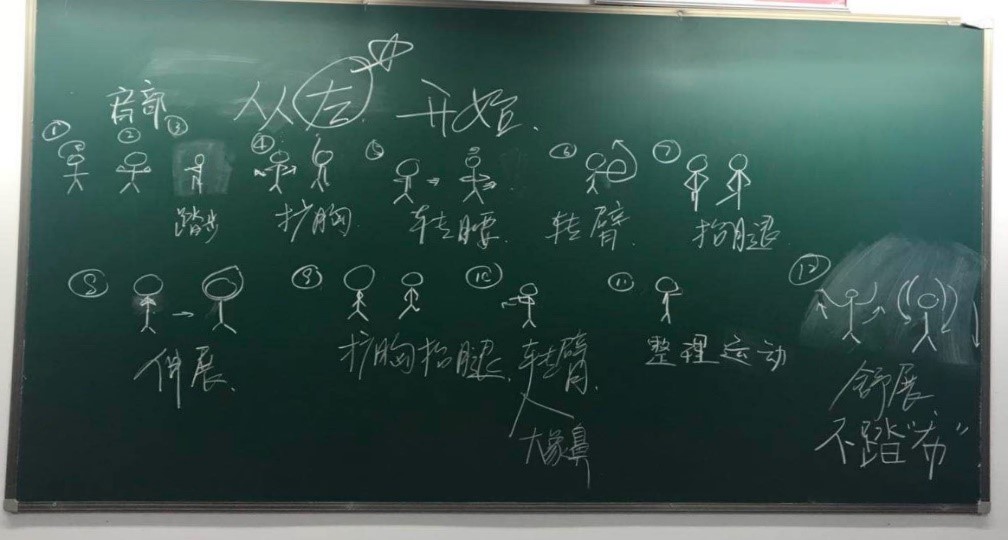 音部 从左开始.
① ② ③ ④ ⑤ ⑥ ⑦
踏步 扩胸 转腰. 转臂. 抬腿
⑧ ⑨ ⑩ ⑪ ⑫
伸展. 扩胸抬腿. 转臂. 整理运动 舒展
大象鼻 不踏“布”